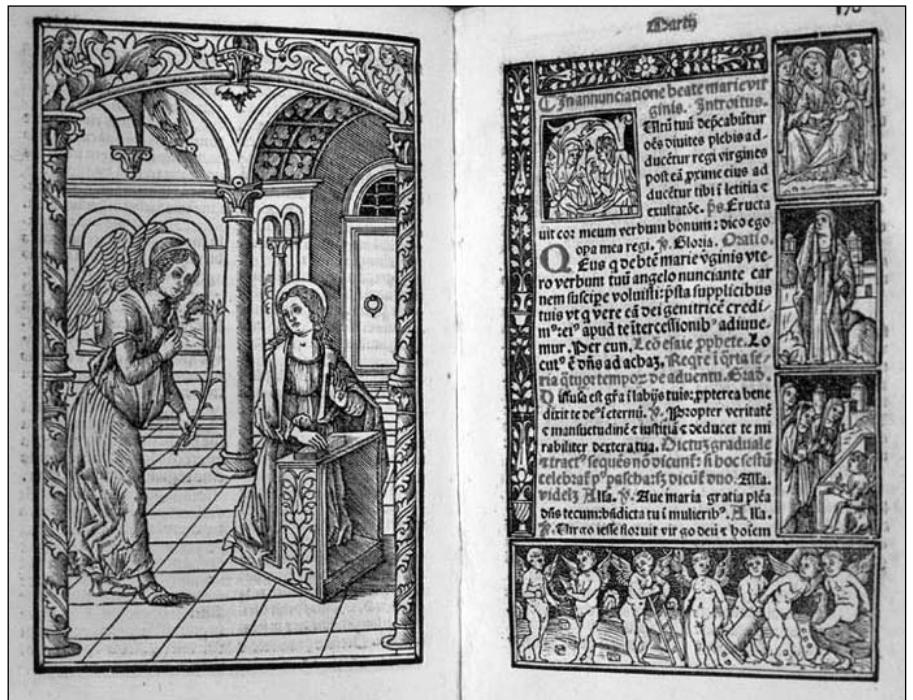 Martij
170
In annunciatione beate marie vir
ginis. Introitus.
Ultū tuū dep̄cabūtur
oēs divites plebis ad-
ducētur regi virgines
post eā ꝓxime eius ad
ducētur tibi ī letitia ⁊
exultatōe. p̄s Eructa
uit cor meum verbum bonum: dico ego
opa mea regi. ℣. Gloria. Oratio.
Eus q̄ de btē marie v̄ginis vte-
ro verbum tuū angelo nunciante car
nem suscipe voluisti: p̄sta supplicibus
tuis vt q̄ vere eā dei genitricē credi-
mꝰ: eiꝰ apud te ītercessionibꝰ adiuue-
mur. Per eun. Lec̄o esaie ꝓphete. Lo
cutꝰ ē dn̄s ad achaz. Reqre ī q̄rta fe-
ria q̄tuor tempoꝝ de aduentu. Grad.
Diffusa est gr̄a ī labijs tuis: ꝓpterea bene
dixit te deꝰ ī eternū. ℣. Propter veritatē
⁊ mansuetudinē ⁊ iustitiā ⁊ deducet te mi
rabiliter dextera tua. Dictuz graduale
⁊ tractꝰ sequēs nō dicunt̄: si hoc festū
celebrat̄ pꝰ pascha: sꝫ dicūt̄ dno. Alla.
videlꝫ Alla. ℣. Aue maria gratia plēa
dn̄s tecum: bn̄dicta tu ī mulieribꝰ. Alla.
℣. Virgo iesse floruit virgo deū ⁊ hoīem